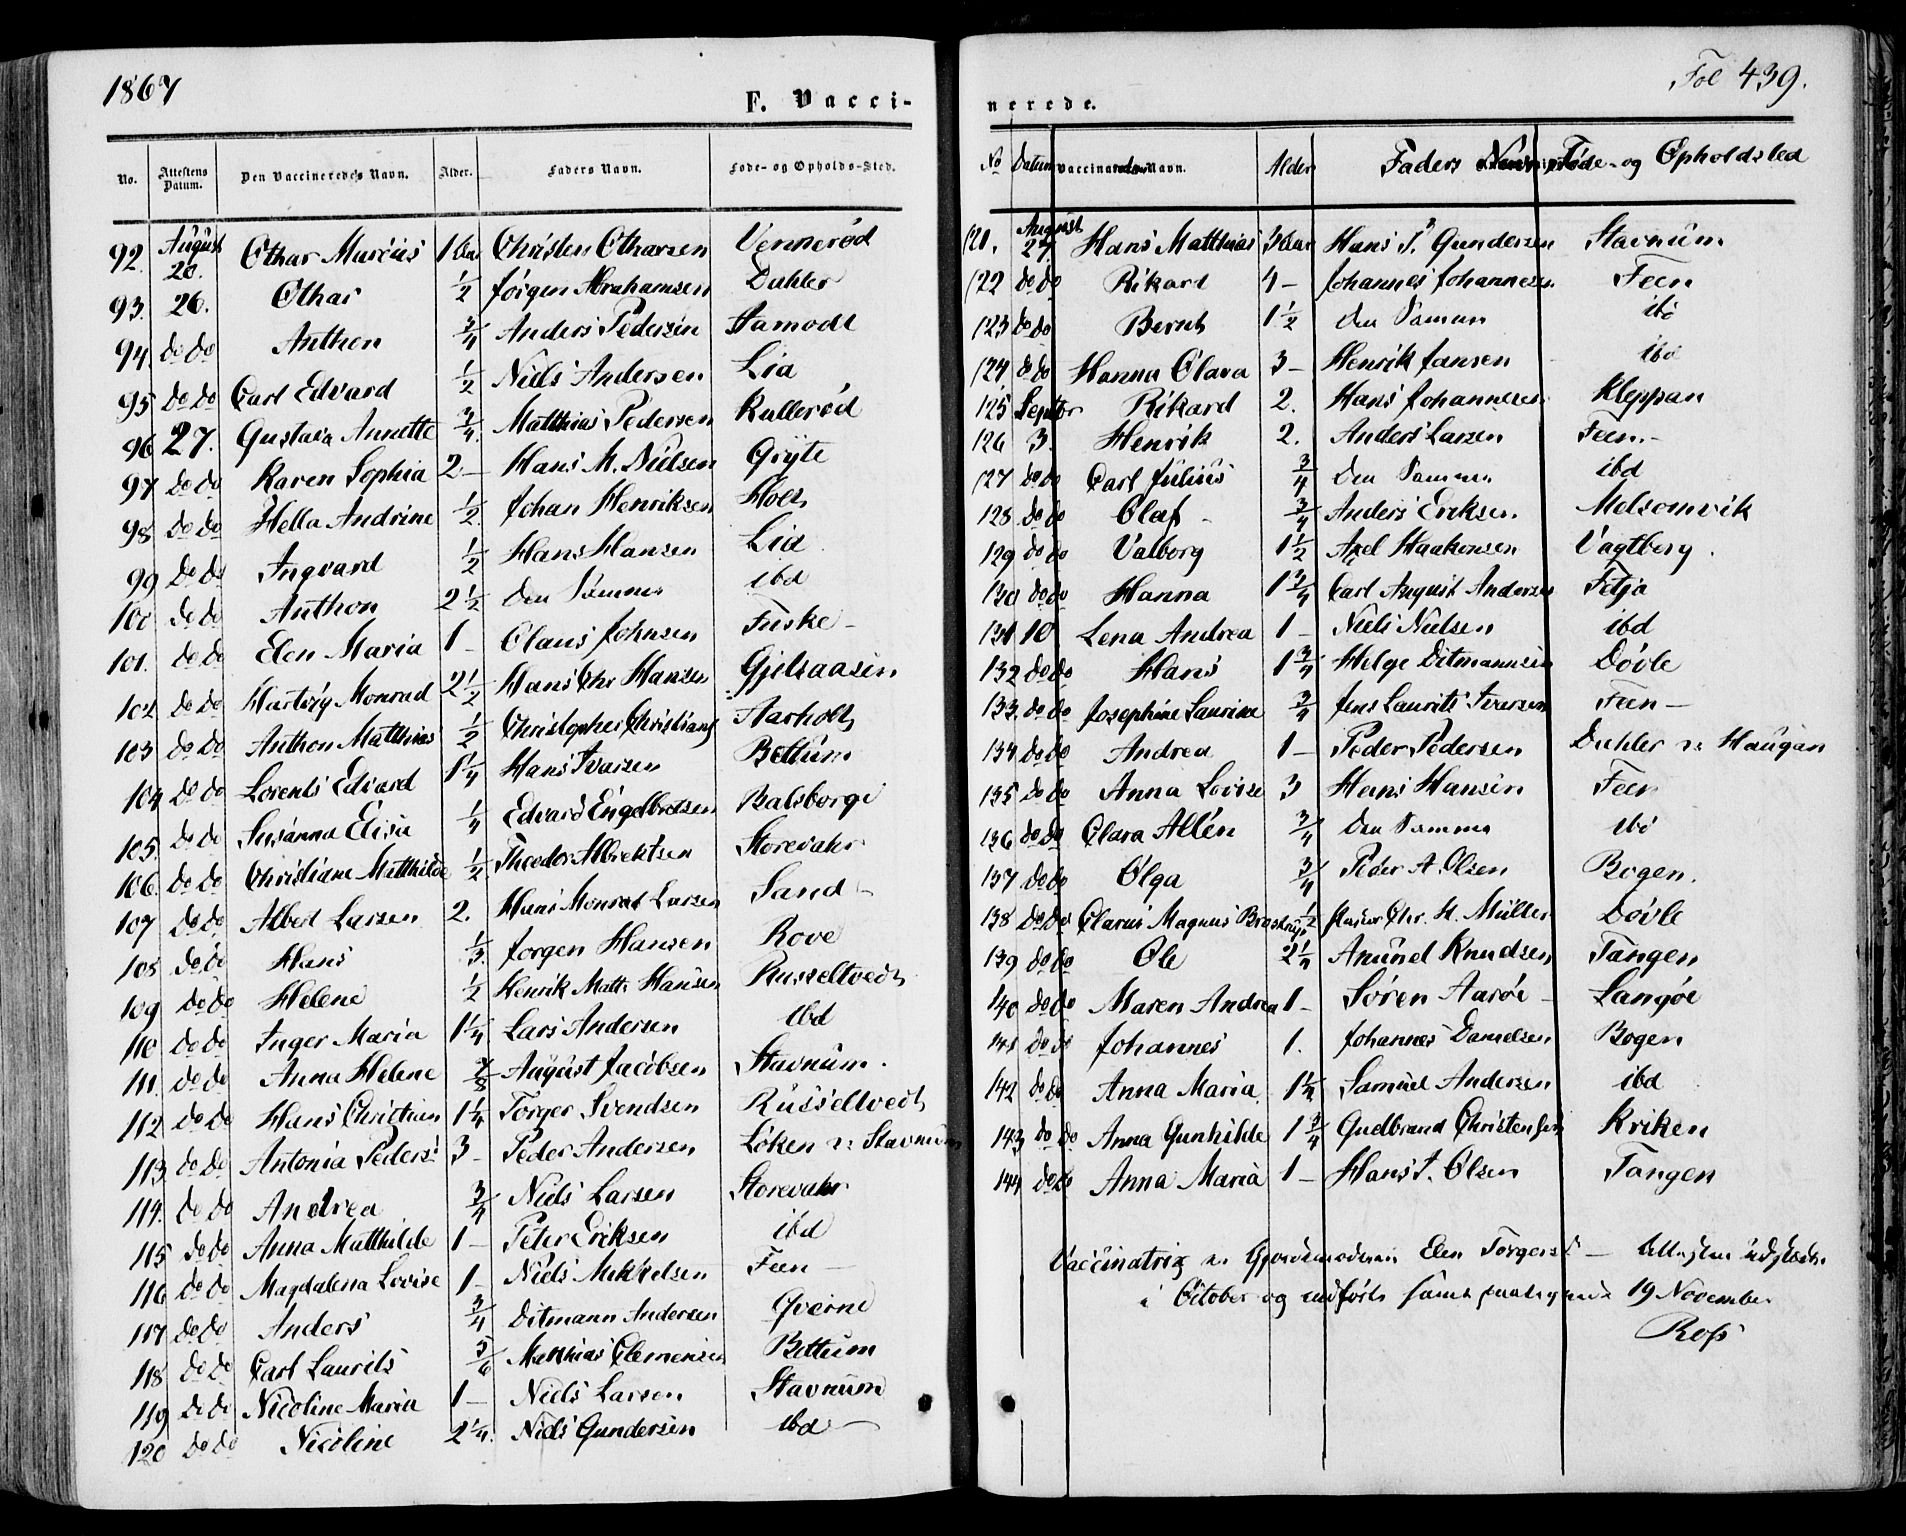 1867
F. Vacci-
No. Attestens Datum. Den Vaccineredes Navn. Alder. Faders Navn. Føde- og Opholds-Sted.
92. August 20. Othar Marius 1 Aar Christen Otharsen Vennerød
93. 26. Othar 1/2 Jørgen Abrahamsen Dahler
94. do do Anthon 3/4 Anders Pedersen
95 do do Carl Edvard 1/2 Niels Andersen Lia
96 27. Gustava Annette 3/4. Matthias Pedersen Rullerød
97 do do Karen Sophia 2 – Hans M. Nielsen Gryte
98 do do Hella Andrine 1/2. Johan Henriksen Holt
99 do do Ingvard 1/2 Hans Hansen Lia
100 do do Anthon 2 1/2 den Samme ibd
101. do do Elen Maria 1 – Olaus Johnsen Fuske –
102 do do Hartvig Monrad 2 1/2 Hans Chr Hansen Gjelsaasen
103 do do Anthon Matthias 1/2 Christopher Christians Aarholt
104 do do Lorents Edvard 1 1/4 Hans Ivarsen Bettum
105. do do Susanna Elisa 1/4 Edvard Engelbretsen Balsborge
106. do do Christiane Matthilde 1/2 Theodor Albrektsen Storevahr
107 do do Albert Larsen 2. Hans Monrad Larsen Sand –
108 do do Hans 1/3 Jorgen Hansen Rove
109 do do Helene 1/2 Henrik Matts Hansen Russeltvedt
110 do do Inger Maria 1 1/4 Lars Andersen ibd
111. do do Anna Helene 7/8 August Jacobsen Stavnum.
112 do do Hans Christian 1 1/4 Torger Svendsen Russeltvedt
113 do do Antonia Peders: 3 – Peder Andersen Løken v: Stavnum
114. do do Andrea 3/4 Niels Larsen Storevahr
115 do do Anna Matthilde 1 – Peter Eriksen ibd
116 do do Magdalena Lovise 1 – Niels Mikkelsen Feen –
117 do do Anders 3/4 Ditmann Andersen Qverne
118 do do Carl Laurits 5/6 Matthias Clemensen Bettum
119 do do Nicoline Maria 1 – Niels Larsen Stavnum
120 do do Nicoline 2 1/4. Niels Gundersen ibd –
Fol 439.
nerede.
No Datum Vaccina Navn. Alder Faders Navn Føde- og Opholdsted
121. August 27 Hans Matthias 3 Aar Hans P. Gundersen Stavnum
122 do do Rikard 4 – Johannes Johannesen Feen
123 do do Bernt 1 1/2 den Samme ibd
124 do do Hanna Olava 3 – Henrik Jansen ibd
125 Septbr Rikard 2. Hans Johannesen Kleppan
126 3. Henrik 2. Anders Larsen Feen. –
127 do do Carl Julius 3/4 den Samme ibd
128 do do Olaf – 3/4 Anders Eriksen Melsomvik
129 do do Valborg 1 1/2 Axel Haakonsen Vagtberg.
130 do do Hanna 1 3/4 Carl August Andersen Fetja
131 10 Lena Andrea 1 – Niels Nielsen ibd
132 do do Hans 1 3/4 Helge Ditmannsen Døvle
133. do do Josephine Laurine 3/4 Jens Laurits Iversen Feen –
134 do do Andrea 1 – Peder Pedersen Dahler v: Haugan
135 do do Anna Lovise 3 Hans Hansen Feen
136 do do Clara Allén 3/4 den Samme ibd
137 do do Olga 3/4 Peder A. Olsen Bogen.
138 do do Clarus Magnus 1/2 Chr. H. Müller Døvle
139 do do Ole 2 1/4 Amund Knudsen Tangen
140 do do Maren Andrea 1 – Søren Aarøe – Langøe
141 do do Johannes 1. Johannes Danielsen Bogen
142 do do Anna Maria 1 1/4 Samuel Andersen ibd
143 do do Anna Gunhilde 1 3/4 Gudbrand Christensen Kriken
144 do do Anna Maria 1 – Hans J. Olsen Tangen
Vaccinatrix er Gjordemoderen Elen Torgers: –
i October og indført samt 19 November
Ross